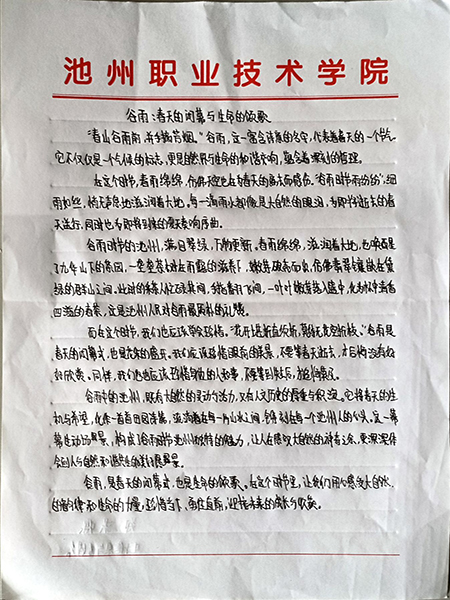 池州职业技术学院
谷雨：春天的闭幕与生命的颂歌
“春山谷雨前，并手摘芳烟。”谷雨，这一富含诗意的名字，代表着春天的一个节气
它不仅仅是一个气候的标志，更是自然界与生命的和谐交响，蕴含着深刻的哲理。
在这个时节，春雨绵绵，仿佛不舍地在为春天的离去而伤感。“谷雨时节雨纷纷”，细
雨如丝，悄无声息地滋润着大地。每一滴雨水都像是大自然的眼泪，为即将逝去的春
天送行，同时也为即将到来的夏天奏响序曲。
谷雨时节的池州，满目翠绿，万物更新。春雨绵绵，滋润着大地，也唤醒
了九华山下的茶园，一垄垄茶树在雨露的滋养下，嫩芽破壳而出，仿佛翡翠镶嵌在苍
绿的群山之间。此时的采茶人忙碌其间，
四溢的春茶，这是池州人民对谷雨最质朴的礼赞。
而在这个时节，我们也应该学会珍惜。“花开堪折直须折，莫待无花空折枝。”谷雨是
春天的闭幕式，也是夏天的启示。我们应该珍惜眼前的美景，不要等春天逝去，才后悔没有好
好欣赏。同样，我们也应该珍惜身边的人和事，不要等到失去后，才懂得
谷雨中的池州，既有大自然的灵动与活力，又有人文历史的厚重与积淀。它将春天的生
机与希望，化作一首首田园诗篇，流淌在每一片山水之间，镌刻在每一个池州人的心头。这一幕
幕生动场景，构成了谷雨时节池州独特的魅力，让人在感叹大自然的神奇之余，更深深体
会到人与自然和谐共生的美好愿景。
谷雨，是春天的闭幕式，也是生命的颂歌。在这个时节里，让我们用心感受大自然
的韵律和生命的力量，珍惜当下，勇往直前，迎接未来的成长与收获。